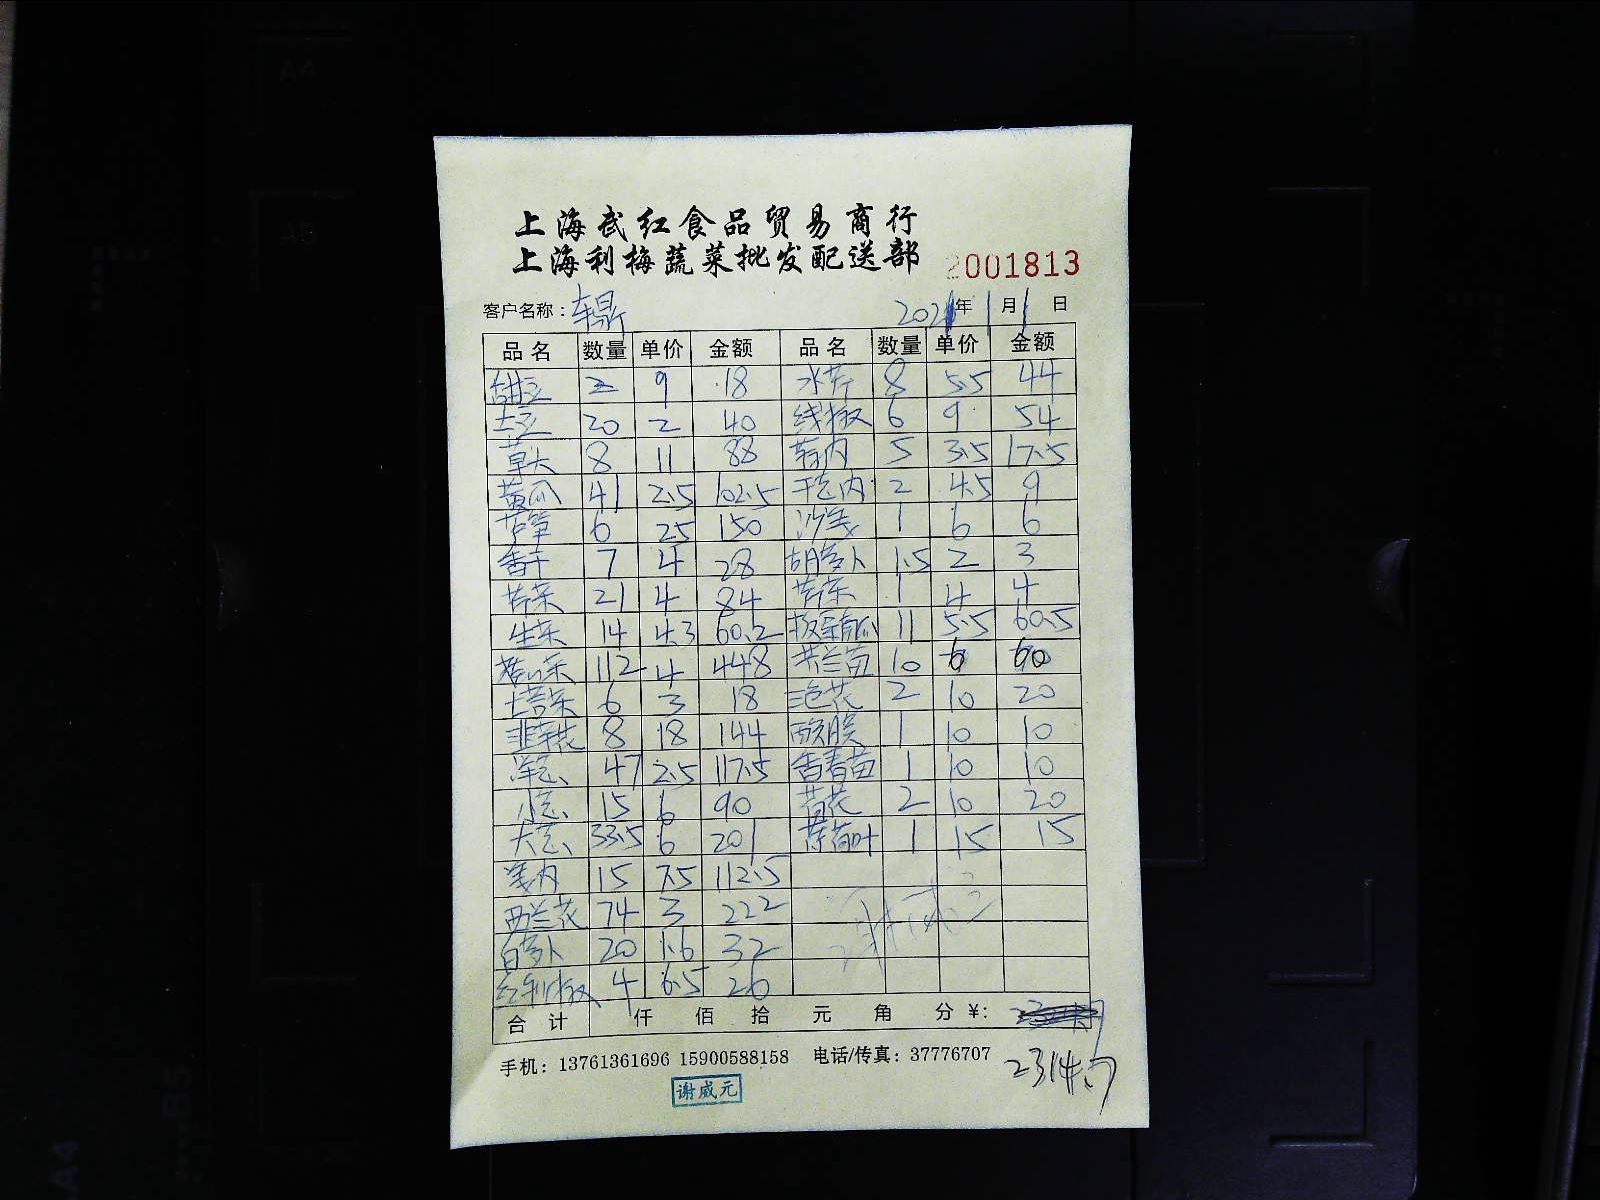 上海武红食品贸易商行
上海利梅蔬菜批发配送部
2001813
客户名称: 2021年1月1日
品名 数量 单价 金额 品名 数量 单价 金额
甜豆 2 9 18 水芹 8 5.5 44
土豆 20 2 40 线椒 6 9 54
草头 8 11 88 5 3.5 17.5
黄瓜 41 2.5 102.5 干芲肉 2 4.5 9
芦笋 6 25 150 沙姜 1 6 6
香干 7 4 28 胡萝卜 1.5 2 3
芹菜 21 4 84 1 4 4
生菜 14 4.3 60.2 板栗南瓜 11 5.5 60.5
112 4 448 共兰苗 10 6 60
6 3 18 三色花 2 10 20
韭菜花 8 18 144 酸膜 1 10 10
洋芲 47 2.5 117.5 香春苗 1 10 10
小芲 15 6 90 荷花 2 10 20
大芲 33.5 6 201 1 15 15
姜肉 15 7.5 112.5
西兰花 74 3 222
白萝卜 20 1.6 32
红利椒 4 6.5 26
合计 仟 佰 拾 元 角 分 ¥:
2314.7
手机: 13761361696 15900588158 电话/传真: 37776707
谢威元